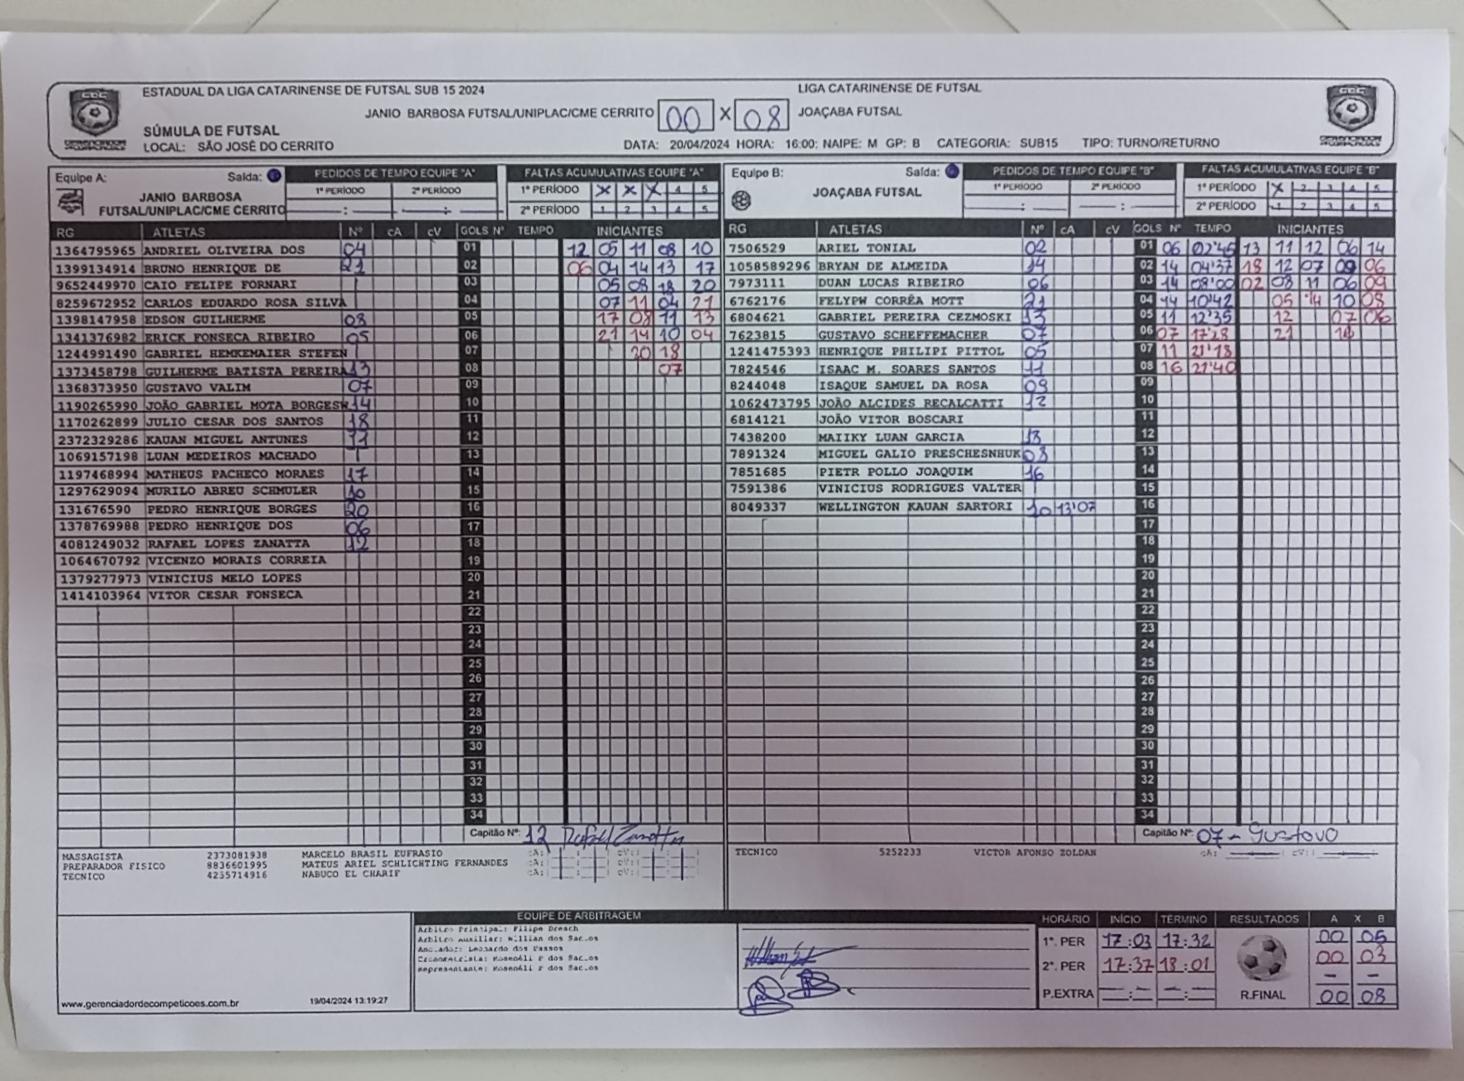 ESTADUAL DA LIGA CATARINENSE DE FUTSAL SUB 15 2024
LIGA CATARINENSE DE FUTSAL
JANIO BARBOSA FUTSAL/UNIPLAC/CME CERRITO 00 X 08 JOAÇABA FUTSAL
SÚMULA DE FUTSAL
LOCAL: SÃO JOSÉ DO CERRITO
DATA: 20/04/2024 HORA: 16:00; NAIPE: M GP: B CATEGORIA: SUB15 TIPO: TURNO/RETURNO
Equipe A: Saída:
JANIO BARBOSA
FUTSAL/UNIPLAC/CME CERRITO
PEDIDOS DE TEMPO EQUIPE "A"
1º PERÍODO 2º PERÍODO
FALTAS ACUMULATIVAS EQUIPE "A"
1º PERÍODO X X X 4 5
2º PERÍODO 1 2 3 4 5
Equipe B: Saída:
JOAÇABA FUTSAL
PEDIDOS DE TEMPO EQUIPE "B"
1º PERÍODO 2º PERÍODO
FALTAS ACUMULATIVAS EQUIPE "B"
1º PERÍODO X 2 3 4 5
2º PERÍODO 1 2 3 4 5
RG ATLETAS Nº cA cV GOLS Nº TEMPO INICIANTES
1364795965 ANDRIEL OLIVEIRA DOS 04 01 12 05 11 08 10
1399134914 BRUNO HENRIQUE DE 21 02 06 04 14 13 17
9652449970 CAIO FELIPE FORNARI 03 05 08 18 20
8259672952 CARLOS EDUARDO ROSA SILVA 04 07 11 04 21
1398147958 EDSON GUILHERME 08 05 17 08 11 13
1341376982 ERICK FONSECA RIBEIRO 05 06 21 14 10 04
1244991490 GABRIEL HEMKEMAIER STEFEN 07 20 18
1373458798 GUILHERME BATISTA PEREIRA 13 08 07
1368373950 GUSTAVO VALIM 07 09
1190265990 JOÃO GABRIEL MOTA BORGESW 14 10
1170262899 JULIO CESAR DOS SANTOS 18 11
2372329286 KAUAN MIGUEL ANTUNES 11 12
1069157198 LUAN MEDEIROS MACHADO 13
1197468994 MATHEUS PACHECO MORAES 17 14
1297629094 MURILO ABREU SCHMULER 10 15
131676590 PEDRO HENRIQUE BORGES 20 16
1378769988 PEDRO HENRIQUE DOS 06 17
4081249032 RAFAEL LOPES ZANATTA 12 18
1064670792 VICENZO MORAIS CORREIA 19
1379277973 VINICIUS MELO LOPES 20
1414103964 VITOR CESAR FONSECA 21
22
23
24
25
26
27
28
29
30
31
32
33
34
Capitão Nº: 12 Rafael Zanatta
RG ATLETAS Nº cA cV GOLS Nº TEMPO INICIANTES
7506529 ARIEL TONIAL 02 01 06 02'45 13 11 12 06 14
1058589296 BRYAN DE ALMEIDA 14 02 14 04'37 18 12 07 09 06
7973111 DUAN LUCAS RIBEIRO 06 03 14 08'00 02 08 11 06 09
6762176 FELYPW CORRÊA MOTT 21 04 14 10'42 05 14 10 08
6804621 GABRIEL PEREIRA CEZMOSKI 13 05 11 12'35 12 07 06
7623815 GUSTAVO SCHEFFEMACHER 07 06 07 17'28 21
1241475393 HENRIQUE PHILIPI PITTOL 05 07 11 21'18
7824546 ISAAC M. SOARES SANTOS 11 08 16 21'40
8244048 ISAQUE SAMUEL DA ROSA 09 09
1062473795 JOÃO ALCIDES RECALCATTI 12 10
6814121 JOÃO VITOR BOSCARI 11
7438200 MAIIKY LUAN GARCIA 13 12
7891324 MIGUEL GALIO PRESCHESNHUK 08 13
7851685 PIETR POLLO JOAQUIM 16 14
7591386 VINICIUS RODRIGUES VALTER 15
8049337 WELLINGTON KAUAN SARTORI 10 13'07 16
17
18
19
20
21
22
23
24
25
26
27
28
29
30
31
32
33
34
Capitão Nº 07 - Gustavo
MASSAGISTA 2373081938 MARCELO BRASIL EUFRASIO
PREPARADOR FISICO 8836601995 MATEUS ARIEL SCHLICHTING FERNANDES
TECNICO 4235714916 NABUCO EL CHARIF
TECNICO 5252233 VICTOR AFONSO ZOLDAN
cA: cV:
EQUIPE DE ARBITRAGEM
Arbitro Principal: Filipe Dresch
Arbitro Auxiliar: Willian dos Santos
Anotador: Leonardo dos Passos
Cronometrista: Rosenéli F dos Santos
Representante: Rosenéli F dos Santos
www.gerenciadordecompeticoes.com.br 19/04/2024 13:19:27
HORÁRIO INÍCIO TÉRMINO RESULTADOS A X B
1º. PER 17:03 17:32 00 05
2º. PER 17:37 18:01 00 03
P.EXTRA R.FINAL 00 08